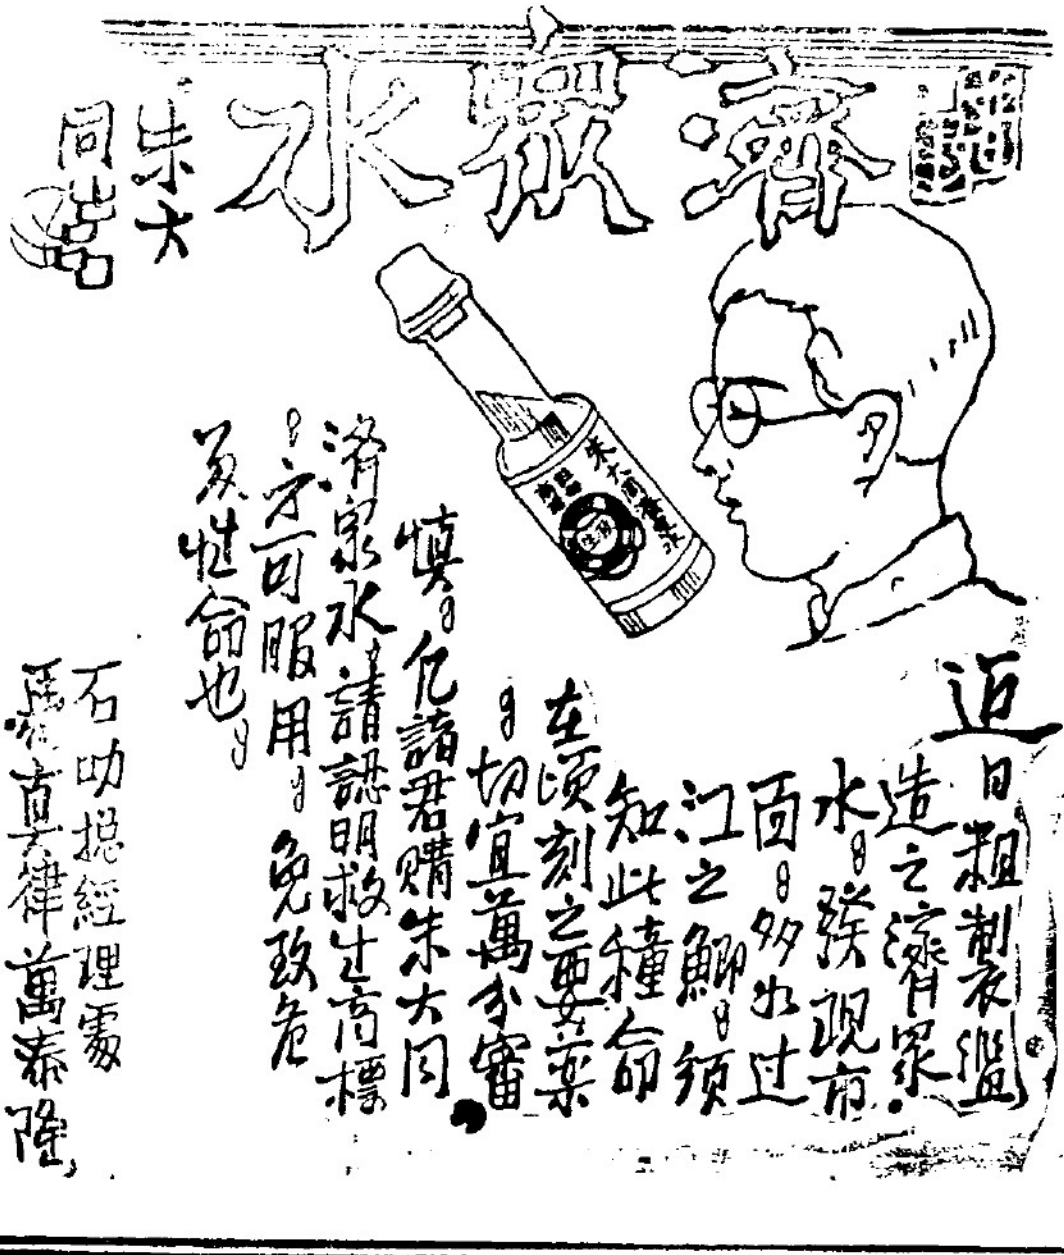 濟眾水
朱大
同
朱大同濟眾水
近日粗製濫
造之濟眾
水。發現市
面。多如过
江之鯽。須
知此種命
在頃刻之要藥
。切宜萬分審
慎。凡諸君購朱大同
濟眾水請認明救生商標
。方可服用。免致危
及性命也。
石叻總經理處
律萬泰隆